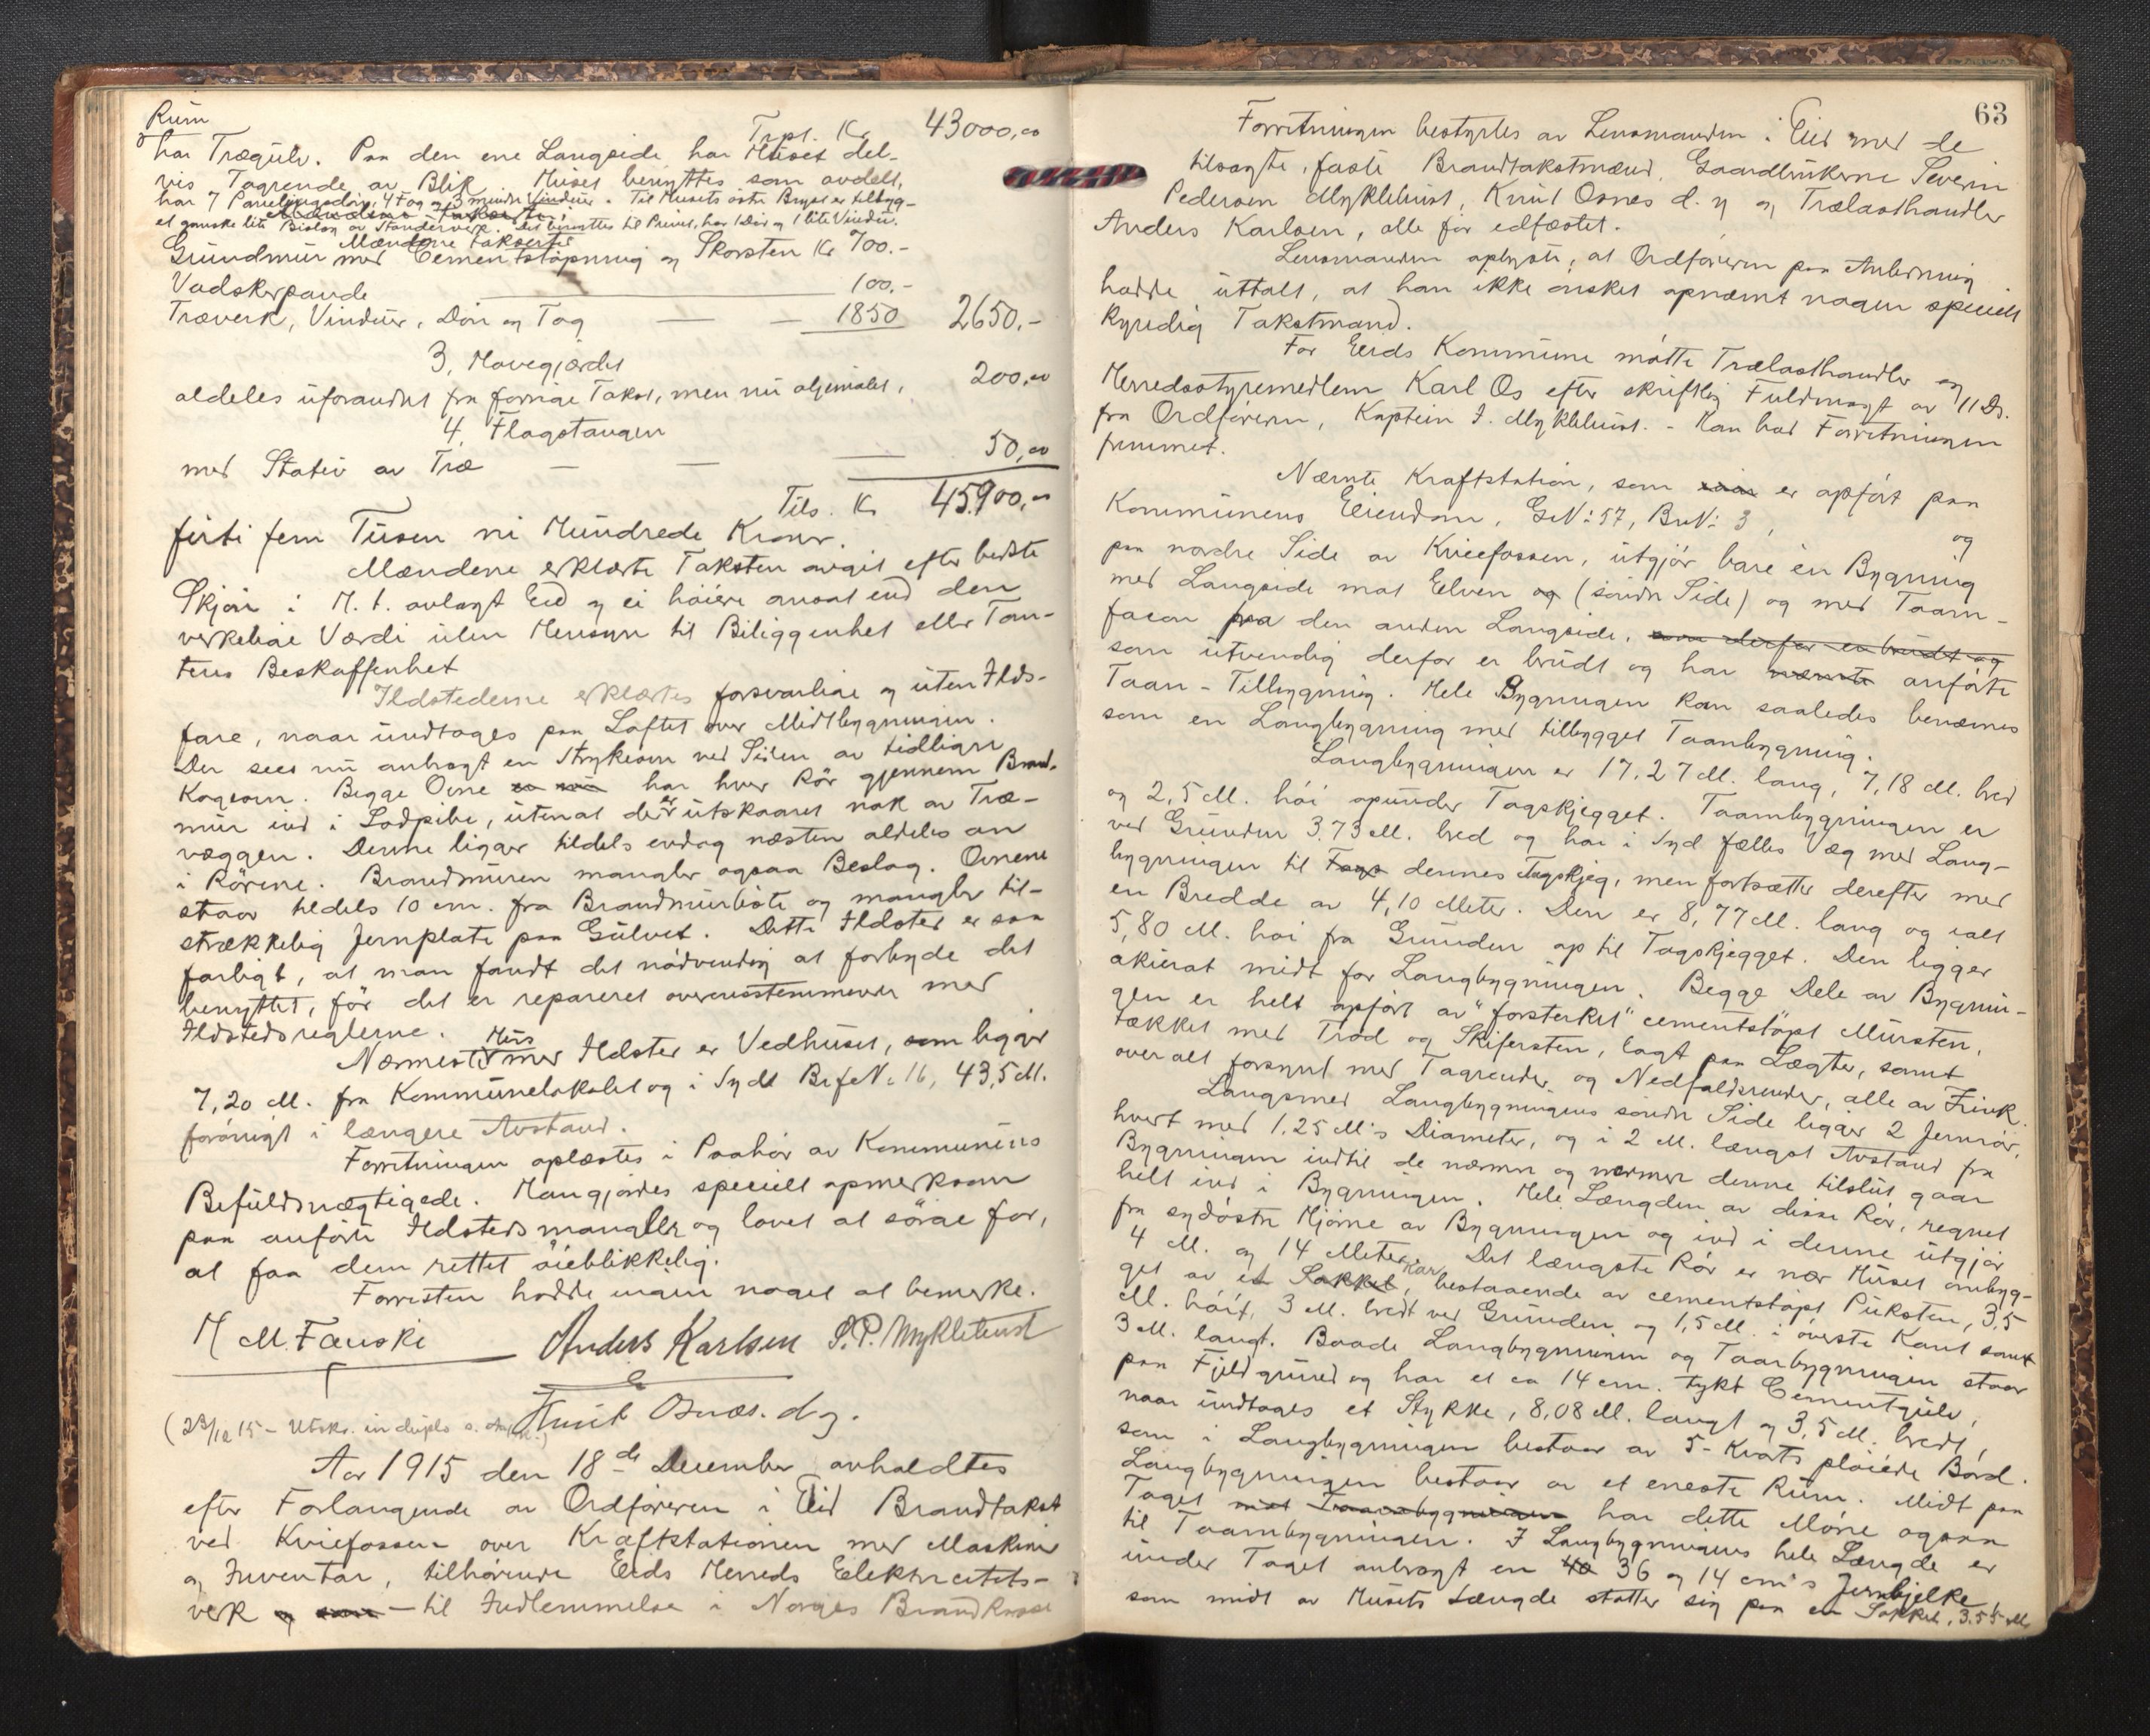 Rum
Trpt. Kr. 43000,00
har Trægulv. Paa den ene Langside har Huset del-
vis Tagrende av Blik. Huset benyttes som avdelt,
har 7 Panelingsdør, 4 Fag og 3 mindre Vinduer. Til Husets østre Bryst er tilbyg-
et ganske lite Bislag av Stænderverk. Det benyttes til Privet, har 1 Dør og 1 lite Vindu.
Mændene takserte
Grundmur med Cementstøpning og Skorsten Kr 700.-
Vadskepande 100.-
Træverk, Vinduer, Dør og Tag — — 1850 2650.-
3, Havegjærdet
aldeles uforandret fra forrige Takst, men nu oljemalet, 200,00
4, Flagstangen
med Stativ av Træ — — — 50,00
Tils. Kr 45900,00
førti fem Tusen ni Hundrede Kroner.
Mændene erklærte Taksten avgit efter bedste
Skjøn i H. t. avlagt Eed og ei høiere ansat end den
verkelige Værdi uten Hensyn til Biliggenhet eller Tom-
tens Beskaffenhet
Ildstederne erklærtes forsvarlige og uten Ilds-
fare, naar undtages paa Loftet over Midtbygningen.
Der sees nu anbragt en Strykeovn ved Siden av tidligere
Kogeovn. Begge Ovne har hver Rør gjennem Brand-
mur ind i Lodpibe, uten at der er utskaaret nok av Træ-
væggen. Denne ligger tildels endog næsten aldeles an
i Rørene. Brandmuren mangler ogsaa Beslag. Ovnene
staar tildels 10 cm. fra Brandmurløse og mangler til-
strækkelig Jernplate paa Gulvet. Dette Ildsted er saa
farligt, at man fandt det nødvendig at forbyde det
benyttet, før det er repareret overensstemmende med
Ildstedsreglerne.
Nærmeste Hus med Ildsted er Vedhuset, som ligger
7,20 M. fra Kommunelokalet og i Syd Brf. No 16, 43,5 M.
forøvrigt i længere Avstand.
Forretningen oplæstes i Paahør av Kommunens
Befuldmægtigede. Han gjordes specielt opmerksom
paa anførte Ildstedsmangler og lovet at sørge for,
at faa dem rettet øieblikkelig.
Forresten hadde ingen noget at bemerke.
H M. Fauske Anders Karlsen S. P. Myklebust
Knut Osnes. d. y.
(23/12 15 - Utskr. in duplo s.
Aar 1915 den 18de December avholdtes
efter Forlangende av Ordføreren i Eid Brandtakst
ved Kviefossen over Kraftstationen med Maskiner
og Inventar, tilhørende Eids Herreds Elektricitets-
verk – til Indlemmelse i Norges Brandkasse
63
Forretningen bestyrtes av Lensmanden i Eid med de
tilsagte, faste Brandtakstmænd, Gaardbrukerne Severin
Pedersen Myklebust, Knut Osnes d. y og Trælasthandler
Anders Karlsen, alle før edfæstet.
Lensmanden oplyste, at Ordføreren paa Anledning
hadde uttalt, at han ikke ønsket opnævnt nogen specielt
kyndig Takstmand.
For Eids Kommune møtte Trælasthandler og
Herredsstyremedlem Karl Os efter skriftlig Fuldmagt av 11 Ds.
fra Ordføreren, Kaptein J. Myklebust. - Han bad Forretningen
fremmet.
Nævnte Kraftstation, som er opført paa
Kommunens Eiendom, G.No: 57, B.No: 3, og
paa nordre Side av Kviefossen, utgjør bare én Bygning
med Langside mot Elven (søndre Side) og med Taarn-
facon paa den anden Langside, som derfor er brudt og
som utvendig derfor er brudt og har nævnte anførte
Taarn-Tilbygning. Hele Bygningen kan saaledes benævnes
som en Langbygning med tilbygget Taarnbygning.
Langbygningen er 17.27 M. lang, 7,18 M. bred
og 2,5 M. høi opunder Tagskjegget. Taarnbygningen er
ved Grunden 3.73 M. bred og har i Syd fælles Væg med Lang-
bygningen til dennes Tagskjeg, men fortsætter derefter med
en Bredde av 4,10 Meter. Den er 8,77 M. lang og ialt
5,80 M. høi fra Grunden op til Tagskjegget. Den ligger
akurat midt for Langbygningen. Begge Dele av Bygnin-
gen er helt opført av "forsterket" cementstøpt Mursten,
tækket med Traad og Skifersten, lagt paa Lægter, samt
overalt forsynt med Tagrender og Nedfaldsrender, alle av Zink.
Langsmed Langbygningens søndre Side ligger 2 Jernrør,
hvert med 1.25 M's Diameter, og i 2 M. længst Avstand fra
Bygningen indtil de nærmer og nærmer denne tilslut gaar
helt ind i Bygningen. Hele Længden av disse Rør, regnet
fra sydøstre Hjørne av Bygningen og ind i denne utgjør
4 M. og 14 Meter. Det længste Rør er nær Huset ombyg-
get av et Sokkel Kar, bestaaende av cementstøpt Puksten, 3,5
M. høit, 3 M. bredt ved Grunden og 1,5 M. i øverste Kant samt
3 M. langt. Baade Langbygningen og Taarnbygningen staar
paa Fjeldgrund og har et ca 14 cm. tykt Cementgulv,
naar undtages et Stykke, 8,08 M. langt og 3,5 M. bredt,
som i Langbygningen bestaar av 5-Kvarts pløiede Bord.
Langbygningen bestaar av et eneste Rum. Midt paa
Taget mot Taarnbygningen har dette Møne ogsaa
til Taarnbygningen. I Langbygningens hele Længde er
under Taget anbragt en 40 36 og 14 cm's Jernbjelke
som midt av Husets Længde støtter sig paa en Sokkel, 3.55 M.